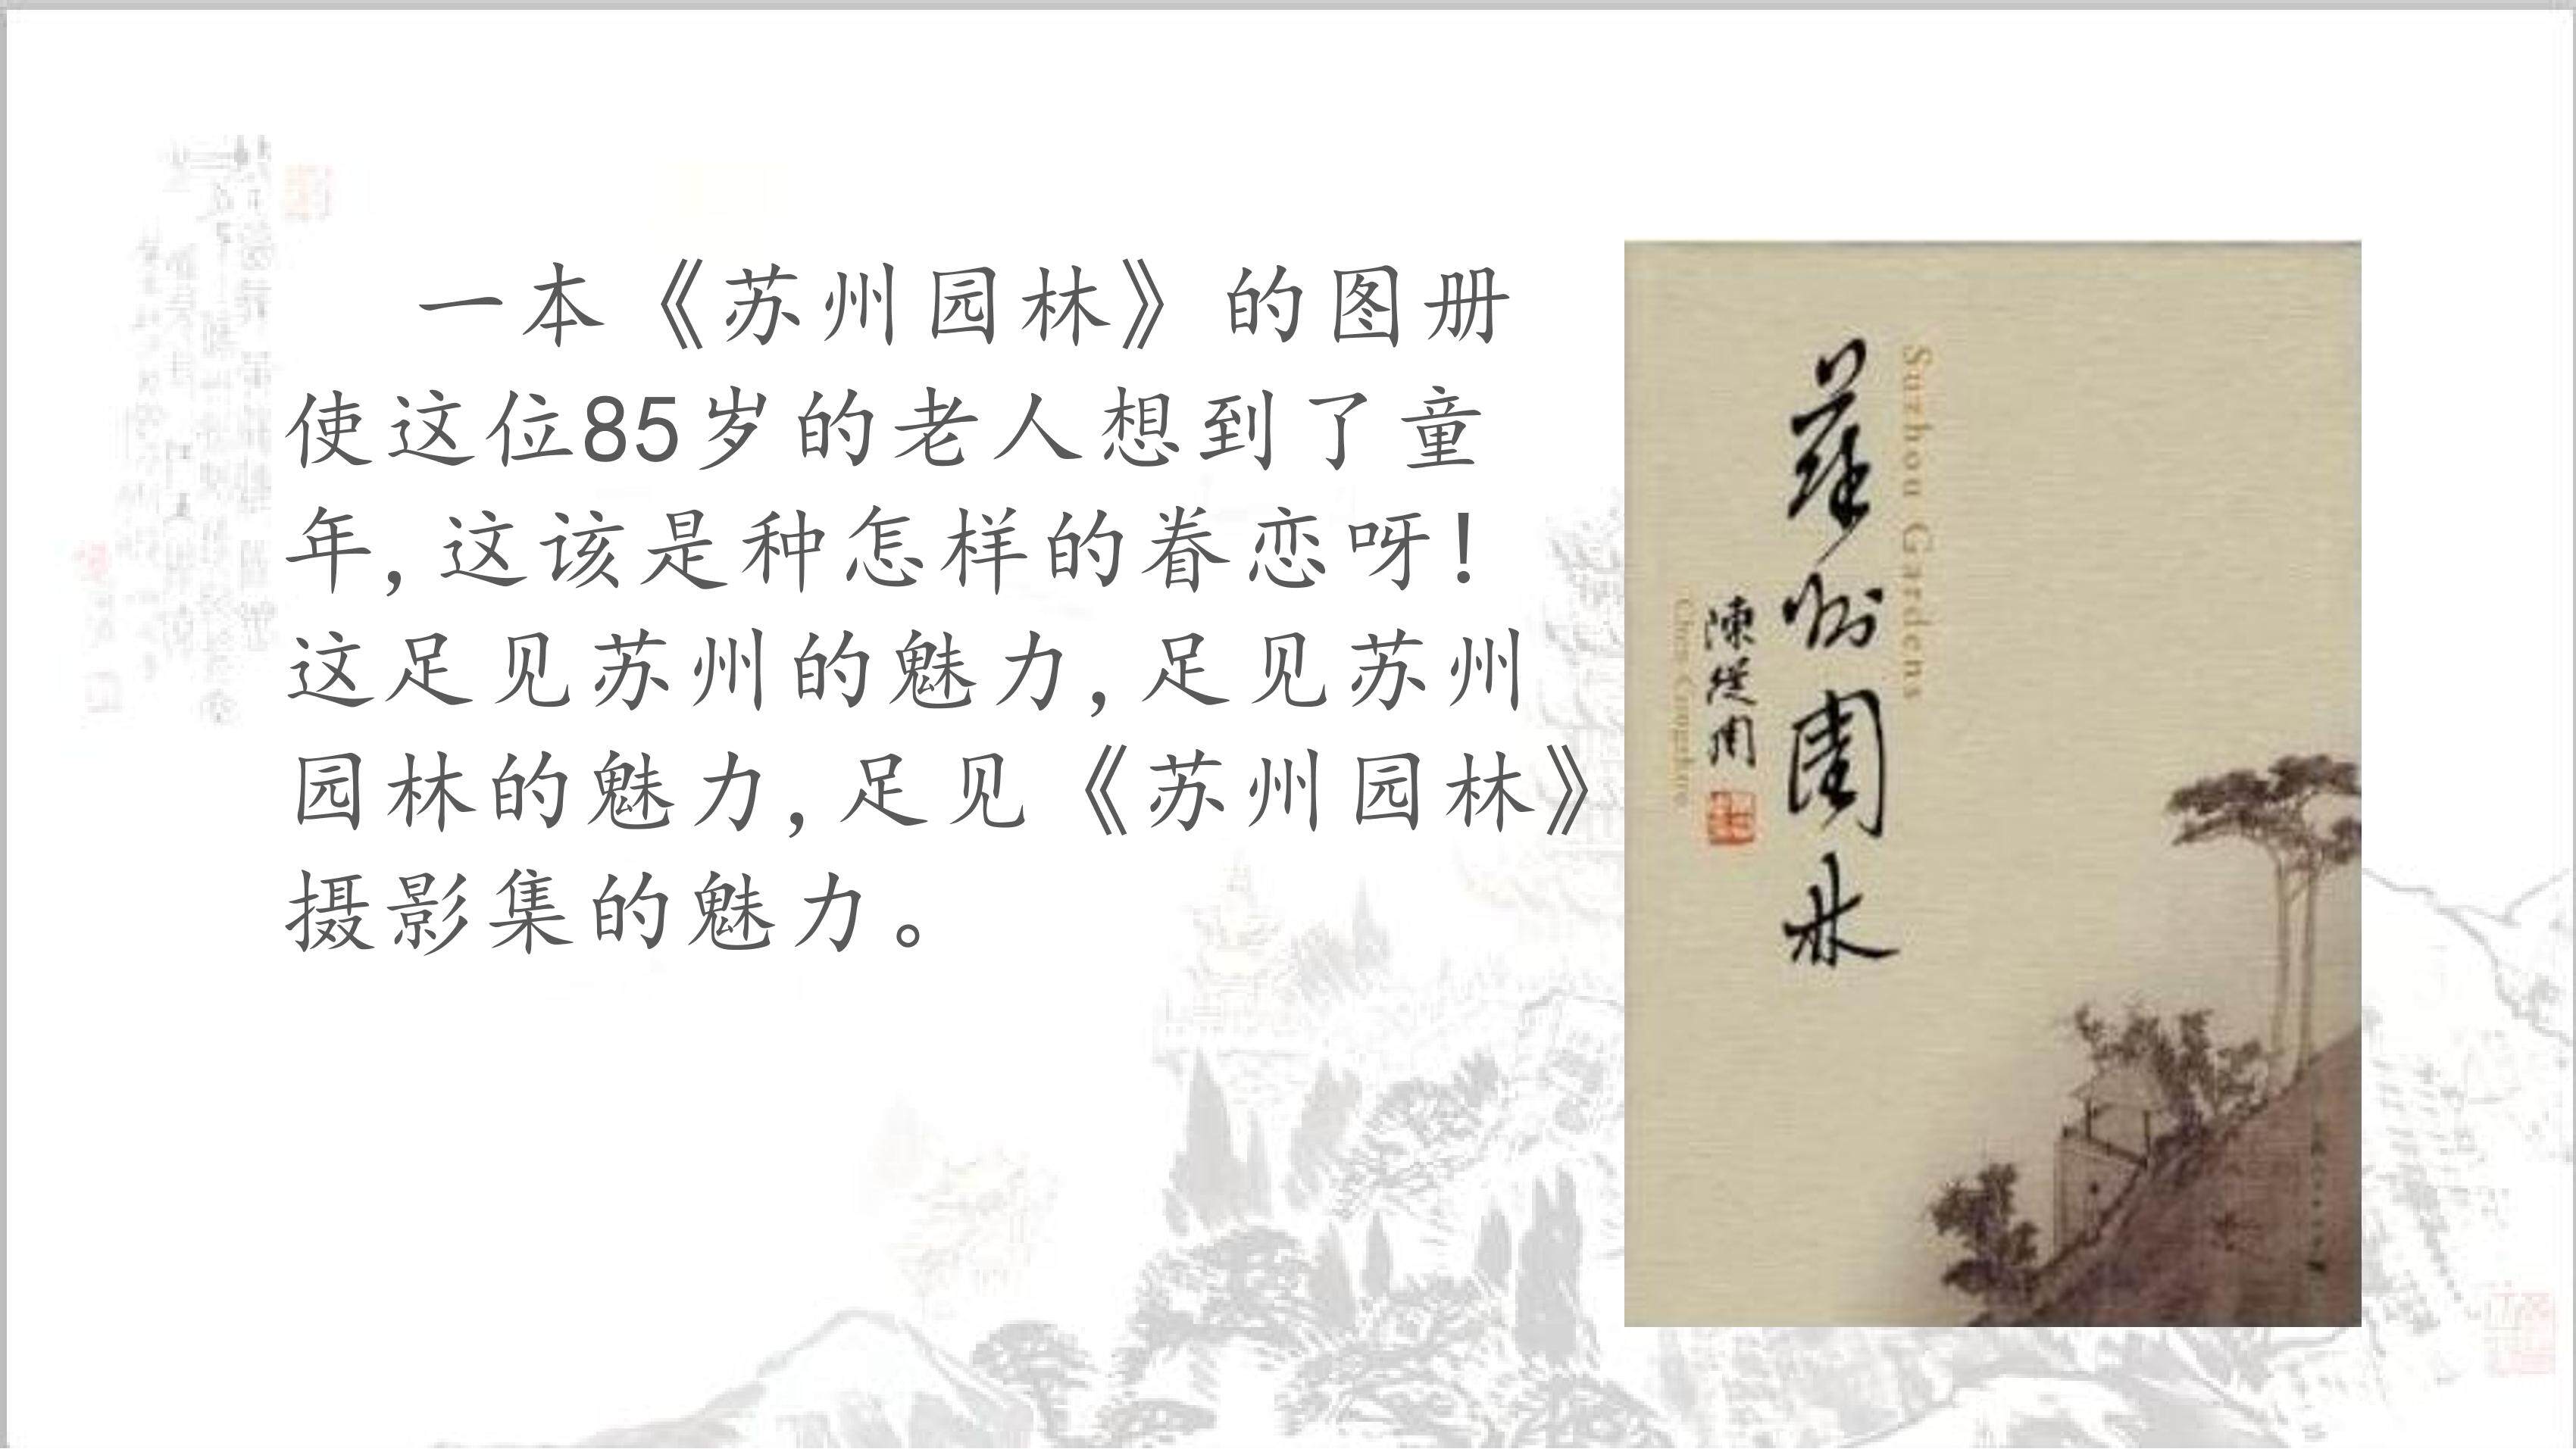 一本《苏州园林》的图册
使这位85岁的老人想到了童
年,这该是种怎样的眷恋呀!
这足见苏州的魅力,足见苏州
园林的魅力,足见《苏州园林》
摄影集的魅力。
Suzhou Gardens
蘇州園林
陳從周
Chen Congzhou